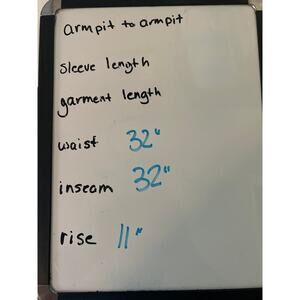 armpit to armpit
sleeve length
garment length
waist 32"
inseam 32"
rise 11"